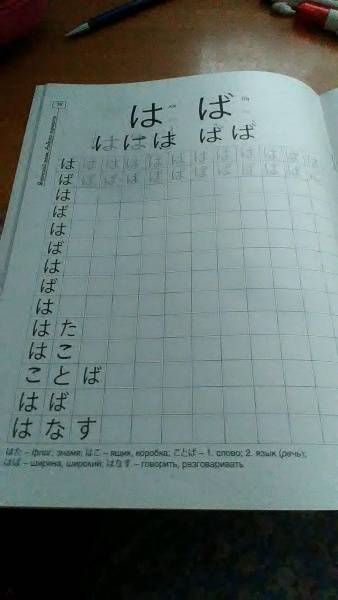 は ば
は は は ば ば
は は は は は は は は は は は は
ば ば ば ば ば ば ば ば ば ば ば
は
ば
は
ば
は
ば
は
はた
はこ
ことば
はば
はなす
はた – флаг, знамя; はこ – ящик, коробка; ことば – 1. слово; 2. язык (речь);
はば – ширина, широкий; はなす – говорить, разговаривать.